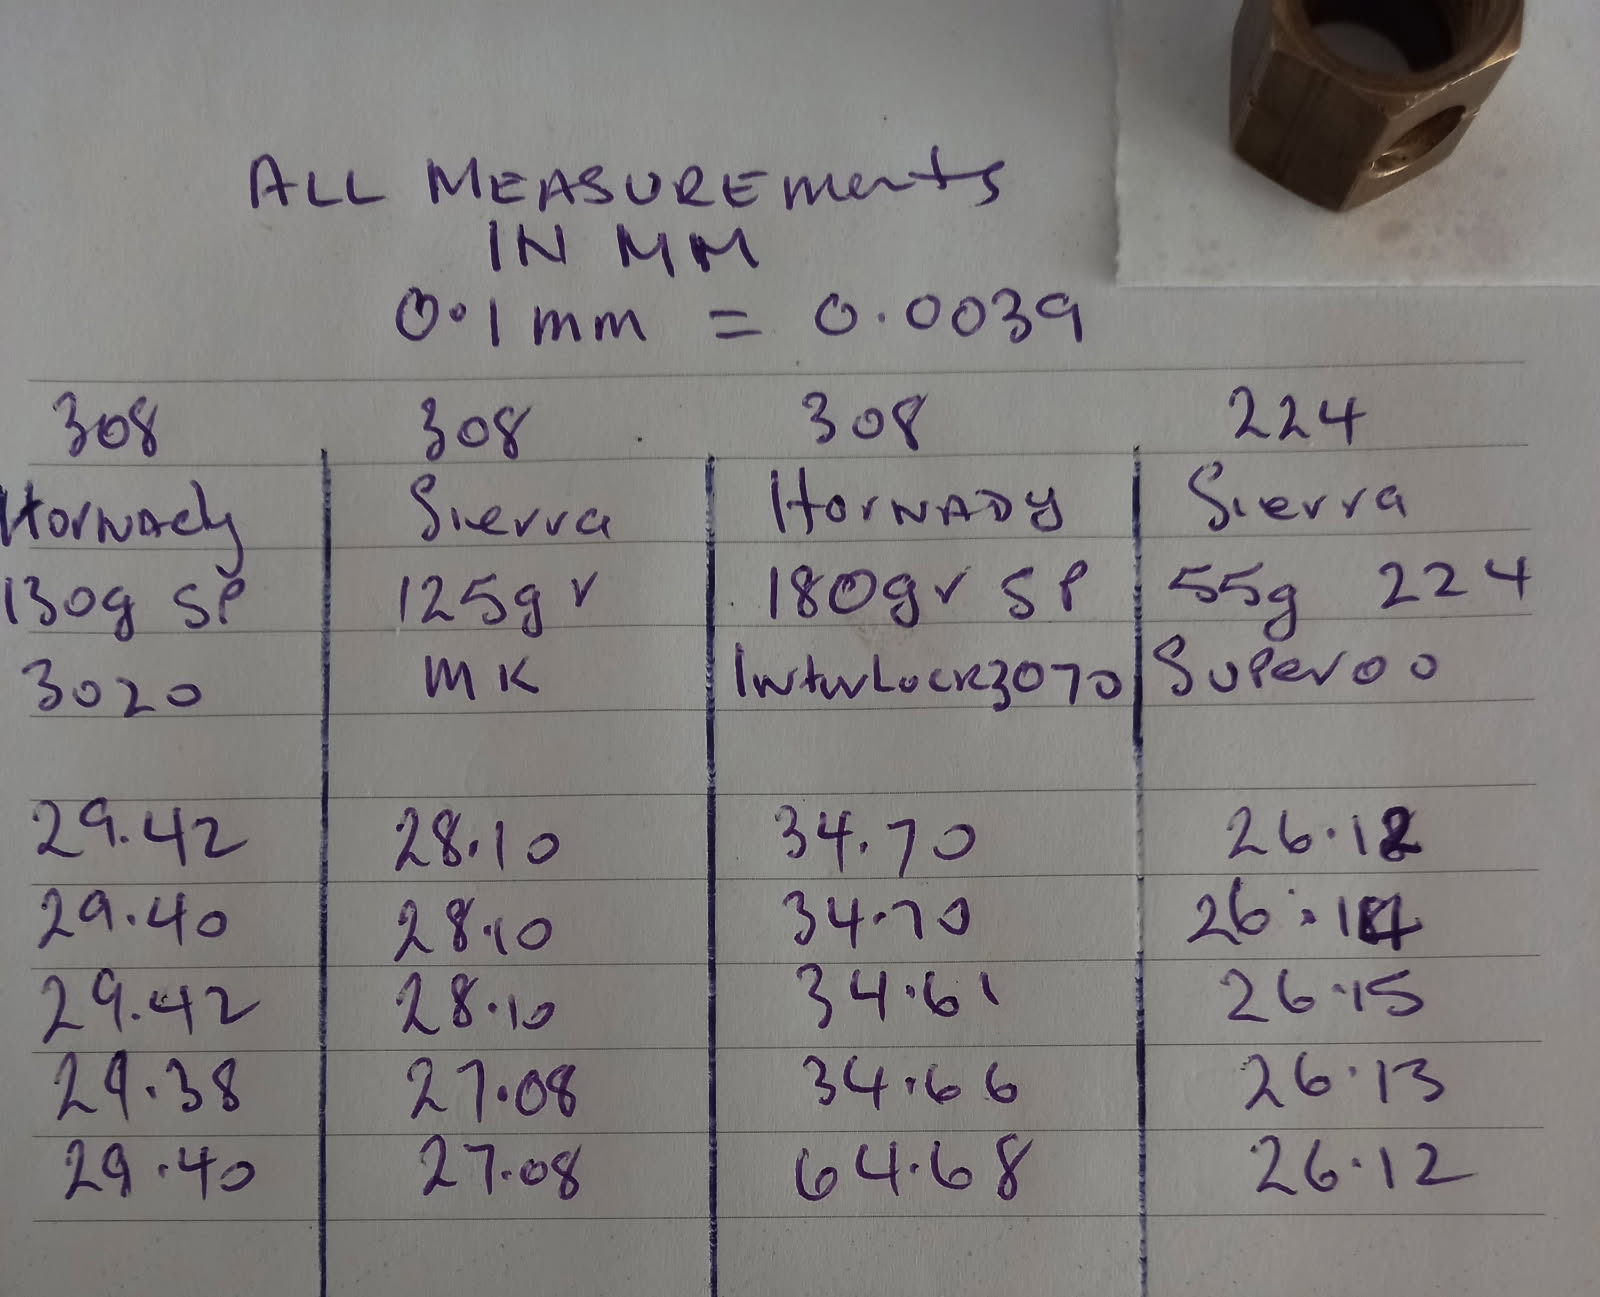 ALL MEASUREments
IN MM
0.1mm = 0.0039
308 308 308 224
HorNAdy Sierra HorNADy Sierra
130g SP 125gr 180gr SP 55g 224
3020 MK InterLock3070 Superoo
29.42 28.10 34.70 26.12
29.40 28.10 34.70 26.14
29.42 28.10 34.61 26.15
29.38 27.08 34.66 26.13
29.40 27.08 64.68 26.12